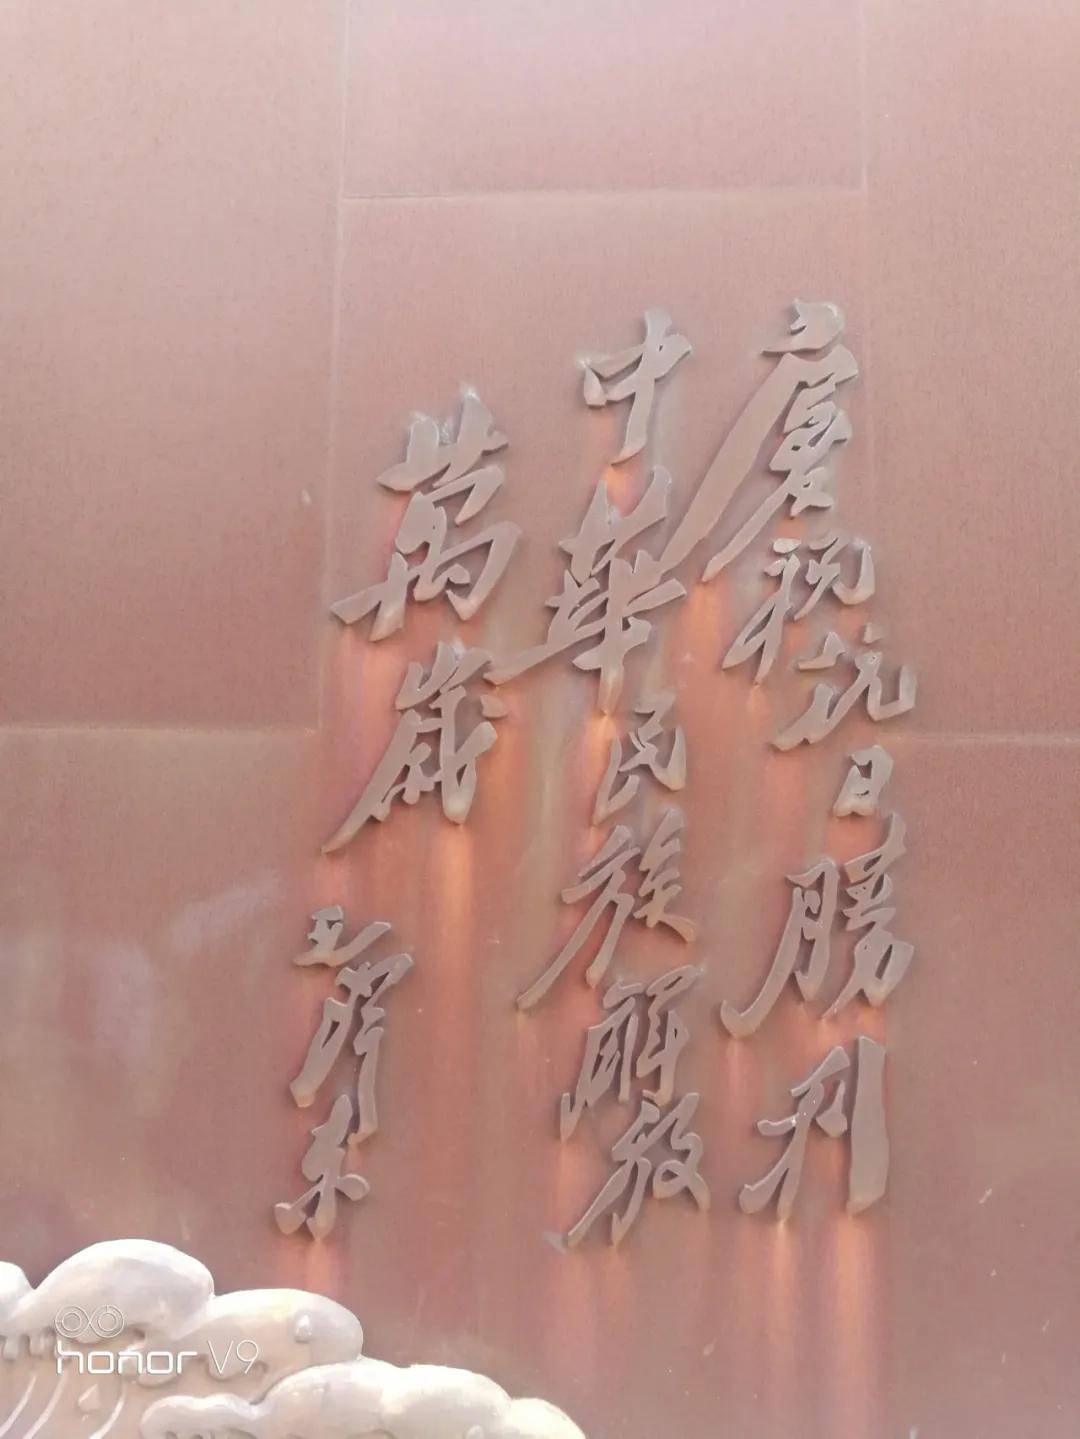 慶祝抗日勝利
中華民族解放
萬歲
毛澤東
honor V9